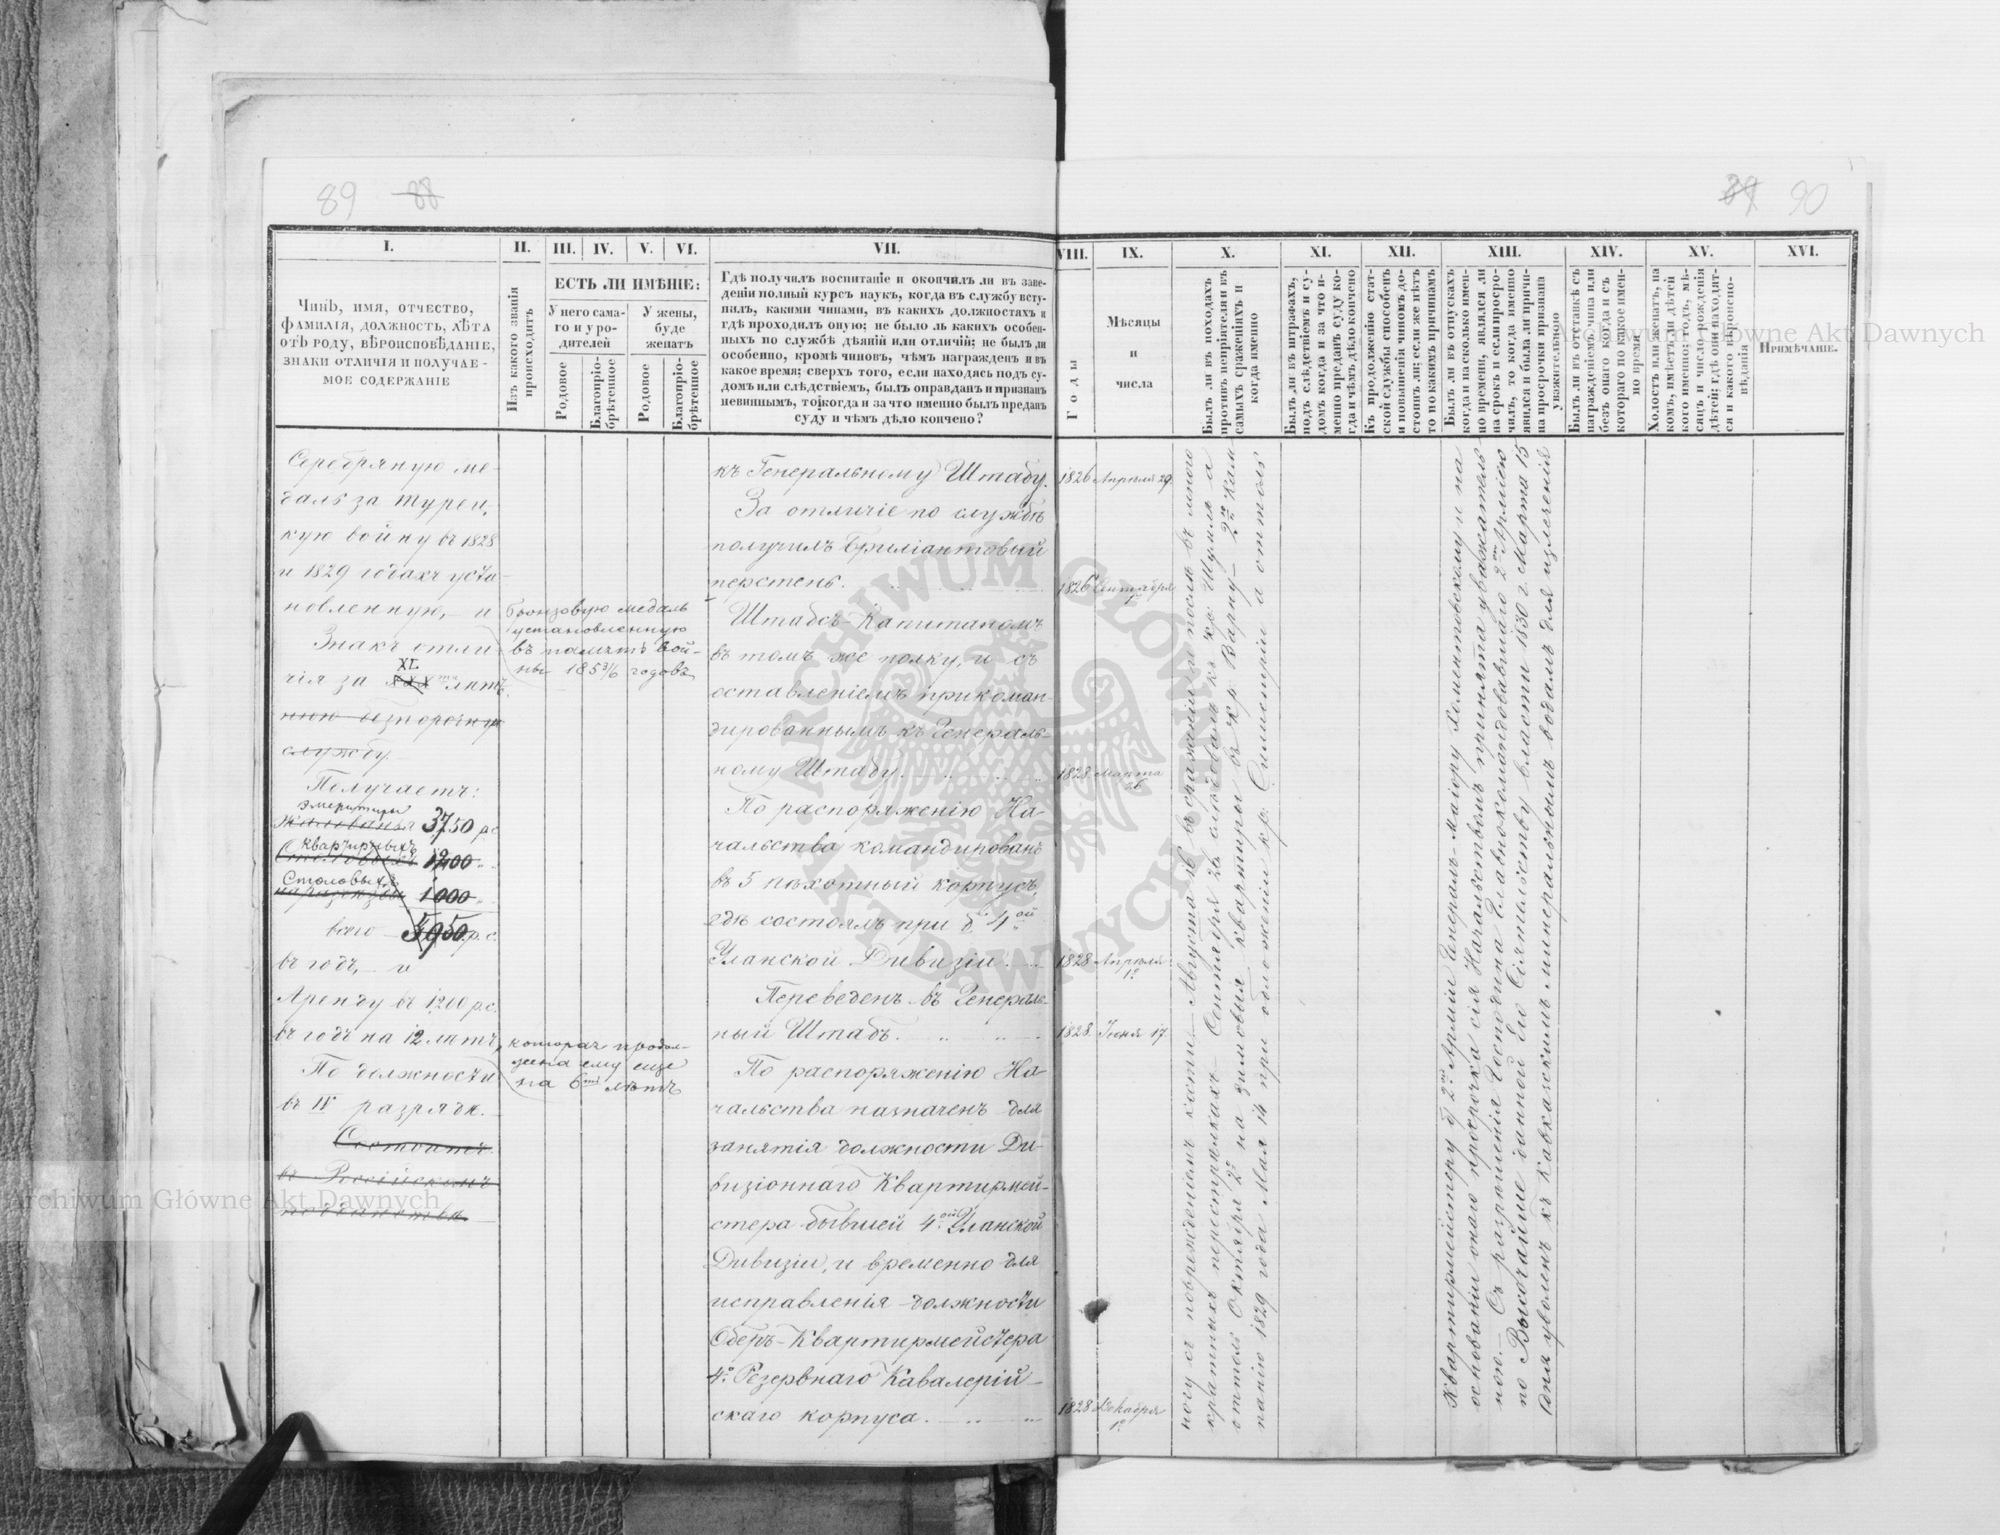 89 88
89 90
I. II. III. IV. V. VI. VII. VIII. IX. X. XI. XII. XIII. XIV. XV. XVI.
Чинъ, имя, отчество,
фамилія, должность, лѣта
отъ роду, вѣроисповѣданіе,
знаки отличія и получае-
мое содержаніе
Изъ какого званія
происходитъ
ЕСТЬ ЛИ ИМѢНІЕ:
У него сама-
го и у ро-
дителей
У жены,
буде
женатъ
Родовое
Благопріо-
брѣтенное
Родовое
Благопріо-
брѣтенное
Гдѣ получилъ воспитаніе и окончилъ ли въ заве-
деніи полный курсъ наукъ, когда въ службу всту-
пилъ, какими чинами, въ какихъ должностяхъ и
гдѣ проходилъ оную; не было ль какихъ особен-
ныхъ по службѣ дѣяній или отличій; не былъ ли
особенно, кромѣ чиновъ, чѣмъ награжденъ и въ
какое время; сверхъ того, если находясь подъ су-
домъ или слѣдствіемъ, былъ оправданъ и признанъ
невиннымъ, то когда и за что именно былъ преданъ
суду и чѣмъ дѣло кончено?
Годы
Мѣсяцы
и
числа
Былъ ли въ походахъ
противъ непріятеля и въ
самыхъ сраженіяхъ и
когда именно
Былъ ли въ штрафахъ,
подъ слѣдствіемъ и су-
домъ когда и за что и-
менно преданъ суду ко-
гда и чѣмъ дѣло кончено
Къ продолженію стат-
ской службы способенъ
и къ повышенію чиномъ до-
стоинъ ли; если же нѣтъ
то по какимъ причинамъ
Былъ ли въ отпускахъ
когда и на сколько имен-
но времени, являлся ли
на срокъ и если просро-
чилъ, то когда именно
явился и была ли причи-
на просрочки признана
уважительною
Былъ ли въ отставкѣ съ
награжденіемъ чина или
безъ онаго когда и съ
котораго по какое имен-
но время
Холостъ или женатъ, на
комъ, имѣетъ ли дѣтей
кого именно; годъ, мѣ-
сяцъ и число рожденія
дѣтей; гдѣ они находят-
ся и какого вѣроиспо-
вѣданія
Примѣчаніе.
Серебряную ме-
даль за Турец-
кую войну въ 1828
и 1829 годахъ уста-
новленную, и
бронзовую медаль
установленную
въ память вой-
ны 1853/6 годовъ
Знакъ отли-
чія за XL XXX лѣт-
нюю безпорочную
службу.
Получаетъ:
эмеритуры
жалованья 3750 р.с.
квартирныхъ
Столовыхъ 1200
Столовыхъ
на разъѣзды 1000
всего 5950 р.с.
въ годъ, и
Аренду въ 1200 р.с.
въ годъ на 12 лѣтъ,
которая продол-
жена ему еще
на 6ть лѣтъ
По должности
въ IV разрядѣ.
Состоитъ
въ Россійскомъ
подданствѣ.
къ Генеральному Штабу. 1826 Апрѣля 29.
За отличіе по службѣ
получилъ брилліантовый
перстень. 1826 Сентября
Штабсъ-Капитаномъ
въ томъ же полку, и съ
оставленіемъ прикоман-
дированнымъ къ Генераль-
ному Штабу. 1828 Марта
По распоряженію На-
чальства командированъ
въ 5 пѣхотный корпусъ,
гдѣ состоялъ при 4ой
Уланской Дивизіи. 1828 Апрѣля
Переведенъ въ Генераль-
ный Штабъ. 1828. Іюня 17.
По распоряженію На-
чальства назначенъ для
занятія должности Ди-
визіоннаго Квартирмей-
стера бывшей 4ой Уланской
Дивизіи, и временно для
исправленія должности
Оберъ-Квартирмейстера
4го Резервнаго Кавалерій-
скаго корпуса. 1828 Декабря
ногу съ поврежденіемъ кости. Августа 16 въ сраженіи и послѣ въ много
кратныхъ перестрѣлкахъ. Сентября 28 слѣдовалъ къ кр: Шумля а
оттоль Октября 2го на зимовыя квартиры въ кр: Варну 2ю кам
панію 1829 года Мая 14 при обложеніи кр: Силистріи а оттоль
Квартирмейстеру 2й Арміи Генералъ-Маіору Хоментовскому и на
основаніи онаго просрочка сія Начальствомъ принята уважитель
ною. Съ разрѣшенія Господина Главнокомандовавшаго 2ю Арміею
по Высочайше данной Его Сіятельству власти 1830 г. Марта 15
дня уволенъ къ Кавказскимъ минеральнымъ водамъ для излеченія
Archiwum Główne Akt Dawnych
Archiwum Główne Akt Dawnych
ARCHIWUM GŁÓWNE AKT DAWNYCH